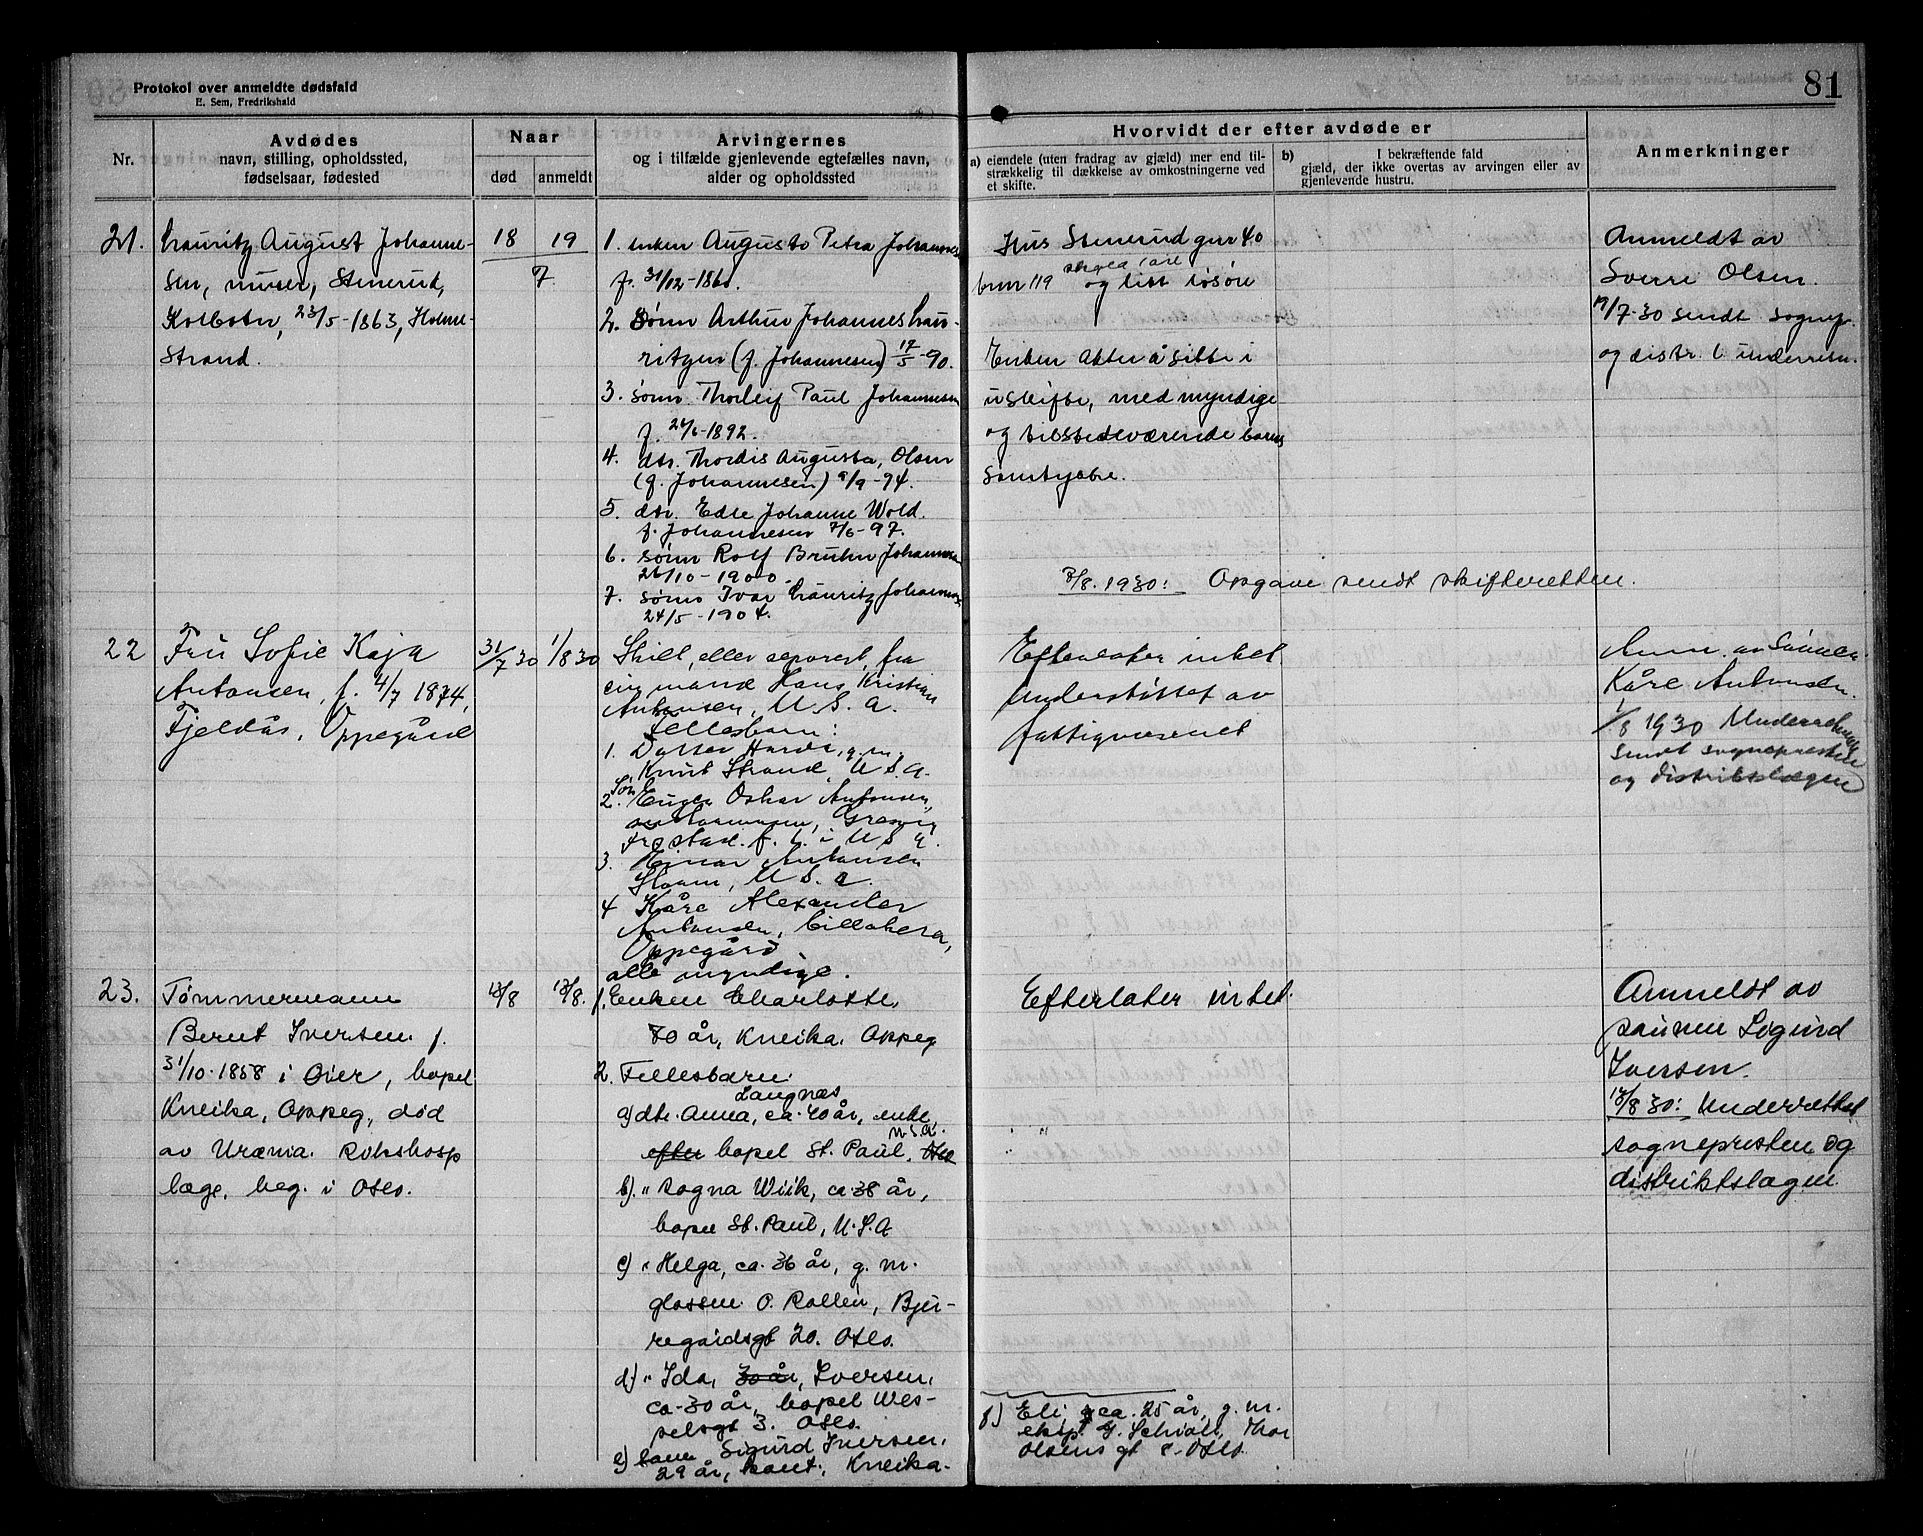 Protokol over anmeldte dødsfald
E. Sem, Fredrikshald
81
Nr.
Avdødes
navn, stilling, opholdssted,
fødselsaar, fødested
Naar
død
anmeldt
Arvingernes
og i tilfælde gjenlevende egtefælles navn,
alder og opholdssted
Hvorvidt der efter avdøde er
a) eiendele (uten fradrag av gjæld) mer end til-
strækkelig til dækkelse av omkostningerne ved
et skifte.
b) I bekræftende fald
gjæld, der ikke overtas av arvingen eller av
gjenlevende hustru.
Anmerkninger
21.
Lauritz August Johanne-
sen, murer, Stenerud,
Kolbotn, 23/5-1863, Holme-
strand.
18 19
7
1. enken Augusta Petra Johannes
f. 31/12-1861.
2. Sønn Arthur Johannes Lau-
ritzen (f. Johannesen) 17/5-90.
3. sønn Thorleif Paul Johannesen
f. 24/6-1892.
4. dtr. Thordis Augusta, Olsen
(f. Johannesen) 9/9-94.
5. dtr. Edle Johanne Wold
f. Johannesen 7/6-97.
6. sønn Rolf Bruhn Johannesen
26/10-1900.
7. sønn Ivar Lauritz Johannes
24/5-1904.
Hus Stenerud gnr 40
bnr 119 og litt løsøre
Enken akter å sitte i
uskifte, med myndige
og tilstedeværende barns
samtykke.
8/8.1930: Opgave sendt skifteretten.
Anmeldt av
Sverre Olsen.
19/7-30 sendt sognep.
og distr. l underretn.
22
Fru Sofie Kaja
Antonsen, f. 4/7 1874,
Fjeldås, Oppegård
31/7 30 1/8 30
Skilt, eller separert, fra
sin mand Hans Kristian
Antonsen, U. S. A.
Fellesbarn:
1. Datter Hardi, g.m.
Knut Strand, U S.A.
Søn
2. Eugen Oskar Antonsen,
Gresvig
Fr.stad. f. t. i U S A.
3. Einar Antonsen
U S. A.
4 Kåre Alexander
Antonsen, Lillehera,
Oppegård
alle myndige.
Efterlater intet
Understøttet av
fattigvæsenet
Anm. av Sønnen
Kåre Antonsen.
1/8 1930 Underretning
sendt sognepresten
og distriktslægen
23.
Tømmermann
Bernt Iversen f.
31/10-1858 i Øier, bopel
Kneika, Oppeg., død
av Uræmia. Rikshosp
læge, beg. i Oslo.
12/8 13/8.
1. Enken Charlotte,
70 år, Kneika. Oppeg
2. Fellesbarn:
Langnæs
a) dtr. Anna, ca. 40 år, enke
U.S.A.
efter bopel St. Paul, Oslo
b) " Ragna Wiik, ca 38 år,
bopel St. Paul, U.S.A
c) " Helga, ca. 36 år, g. m.
glassm. O. Rallen, Bjer-
regaidsgt 20. Oslo.
d) " Ida, 30 år, Iversen,
ca. 30 år, bopel Wes-
selsgt 3. Oslo.
e) sønn Sigurd Iversen,
29 år, Kneika.
Efterlater intet.
f) Eli, ca. 25 år, g. m.
eksp. G. Schiøll, Thor
Olsens gt 8. Oslo
Anmeldt av
sønnen Sigurd
Iversen.
13/8 30: Underrettet
sognepresten og
distriktslægen.